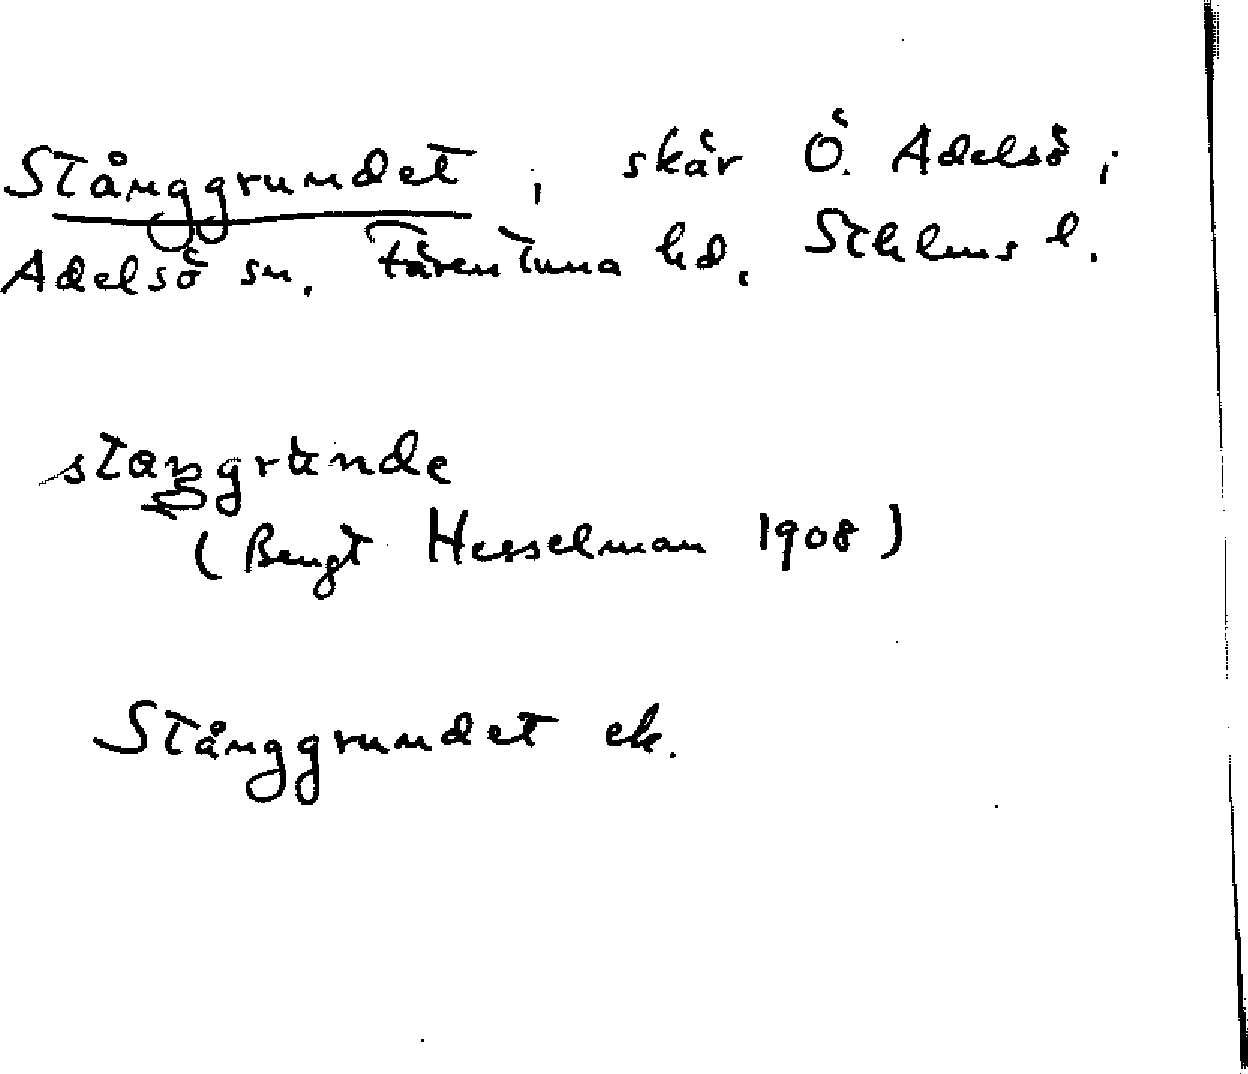 Stånggrundet, skär Ö. Adelsö i
Adelsö sn. Färentuna hd. Sthlms l.
(Bengt Hesselman 1908)
Stånggrundet ek.